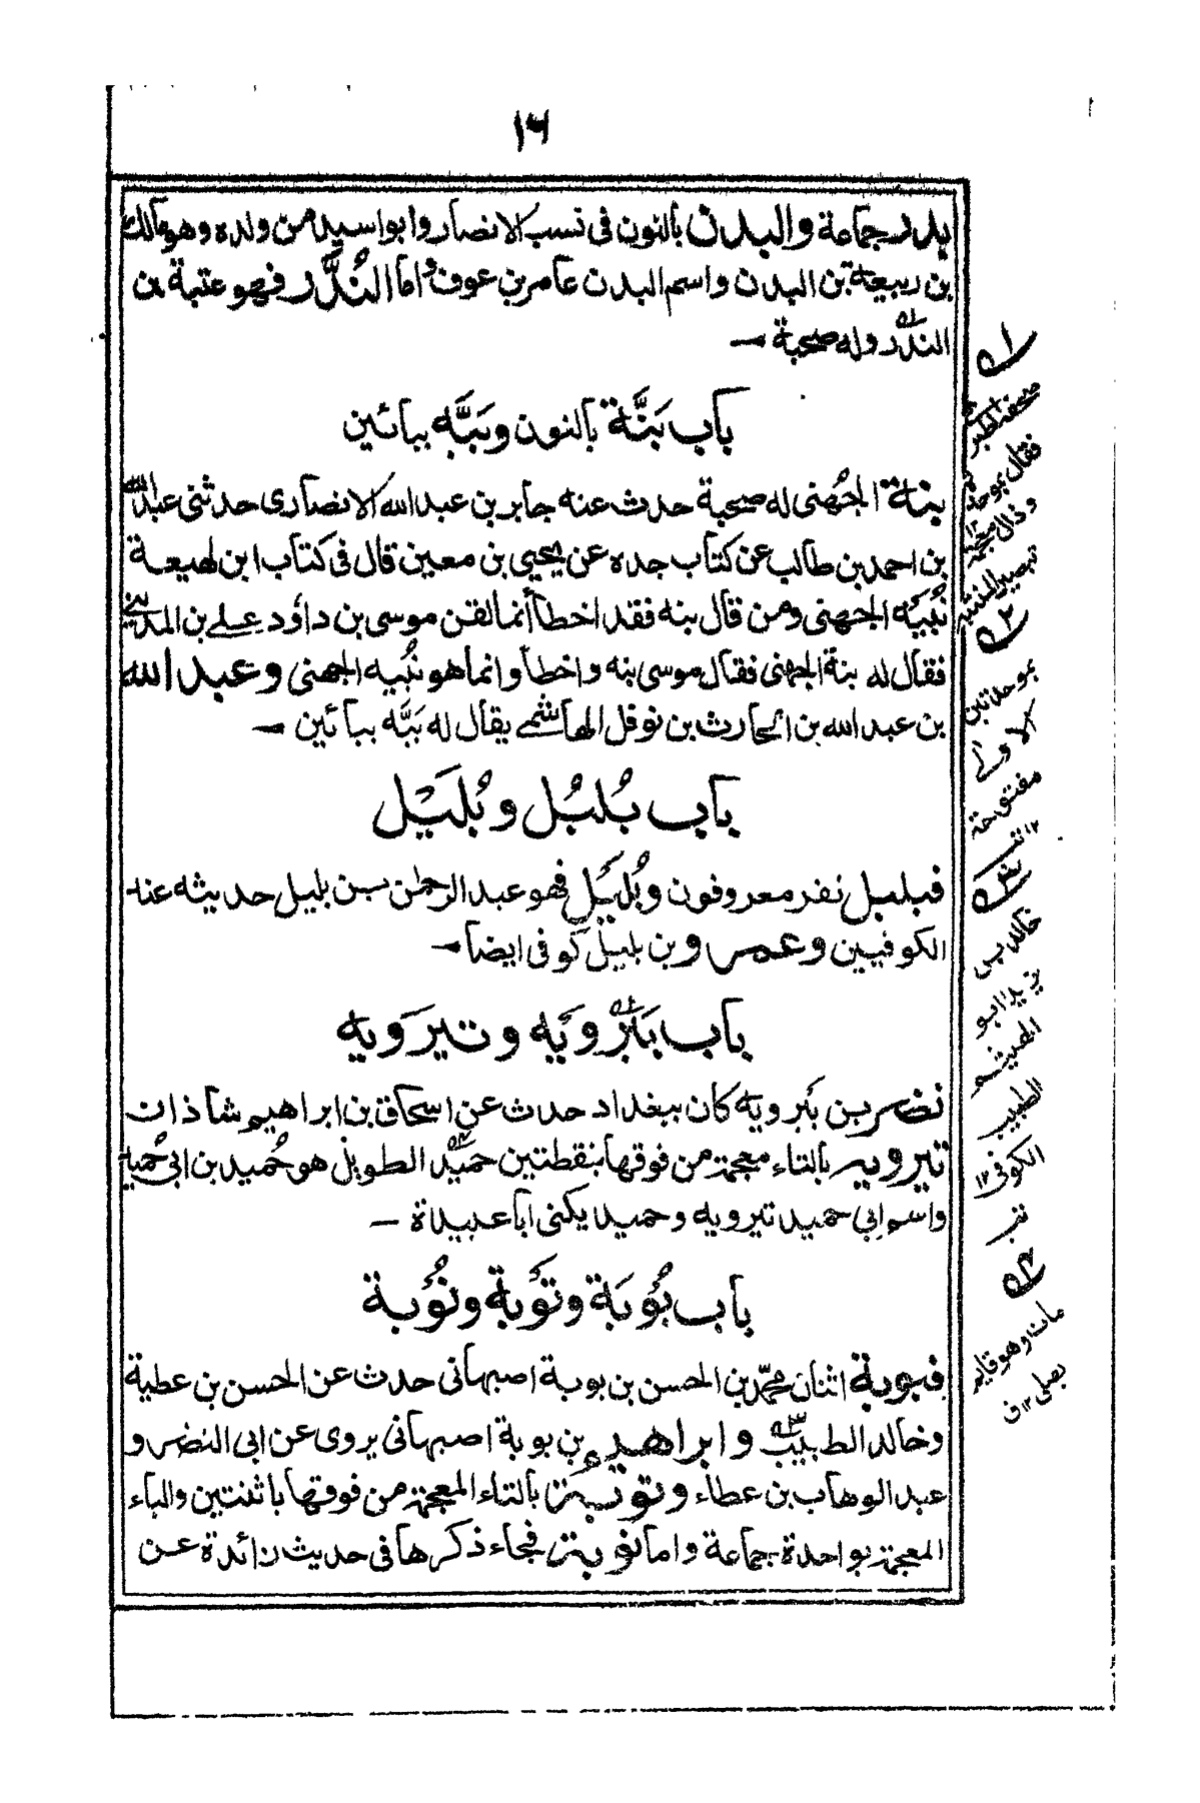 ١٦
بدر جماعة والبدن بالنون فى نسب الانصار وابو اسيد من ولده وهو مالك
بن ربيعة بن البدن واسم البدن عامر بن عوف واما النُّدَّر فهو عتبة بن
الندّر وله صحبة —
باب بَنَّة بالنون وبَبَّه ببائين
بنة الجُهنى له صحبة حدث عنه جابر بن عبد الله الانصارى حدثنى عبد الله
بن احمد بن طالب عن كتاب جده عن يحيى بن معين قال فى كتاب ابن لهيعة
نُبَيه الجهنى ومن قال بنه فقد اخطأ انما لقن موسى بن داؤد على بن المدينى
فقال له بنة الجهنى فقال موسى بنه واخطأ وانما هو نُبيه الجهنى وعبد الله
بن عبد الله بن الحارث بن نوفل الهاشمى يقال له بَبَّه ببائين —
باب بُلبُل وبُلَيْل
فبلبل نفر معروفون وبُلَيَل فهو عبد الرحمٰن بن بليل حديثه عند
الكوفيين وعمرو بن بليل كوفى ايضا —
باب بَبْرُويَه وتيرَويه
نضر بن بَبرويه كان ببغداد حدث عن اسحاق بن ابراهيم شاذان
تيرويه بالتاء معجمة من فوقها بنقطتين حميد الطويل هو حُميد بن ابى حُميد
واسم ابى حميد تيرويه وحميد يكنى ابا عبيدة —
باب بُوُبَة وتَوُبَة ونُوُبة
فبوبة اثنان محمّد بن الحسن بن بوبة اصبهانى حدث عن الحسن بن عطية
وخالد الطبيب وابراهيم بن بوبة اصبهانى يروى عن ابى النضر و
عبد الوهاب بن عطاء وتوبة بالتاء المعجمة من فوقها باثنتين والباء
المعجمة بواحدة جماعة واما نوبة فجاء ذكرها فى حديث زائدة عن
١
فقال بموحدة
٢
بموحدتين
الاولى
مفتوحة
١٢
٣
خالد بن
يزيد ابو
الهيثم
الطبيب
الكوفى ١٢
٤